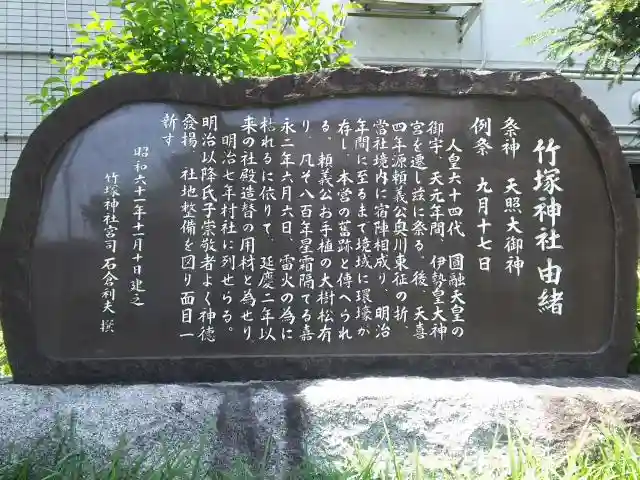 竹塚神社由緒
祭神　天照大御神
例祭　九月十七日
人皇六十四代　圓融天皇の
御宇、天元年間、伊勢皇大神
宮を遷し茲に祭る。後、天喜
四年源頼義公奥州東征の折、
當社境内に宿陣相成り、明治
年間に至るまで境域に環壕が
存し、本営の舊跡と傳へられ
る。頼義公お手植の大樹松有
り、凡そ八百年星霜隔てる嘉
永二年六月六日、雷火の為に
枯れるに依りて、延慶二年以
来の社殿造替の用材と為せり。
明治七年村社に列せらる。
明治以降氏子崇敬者よく神徳
發揚、社地整備を図り面目一
新す。
昭和六十一年十一月十日建之
竹塚神社宮司　石倉利夫　撰